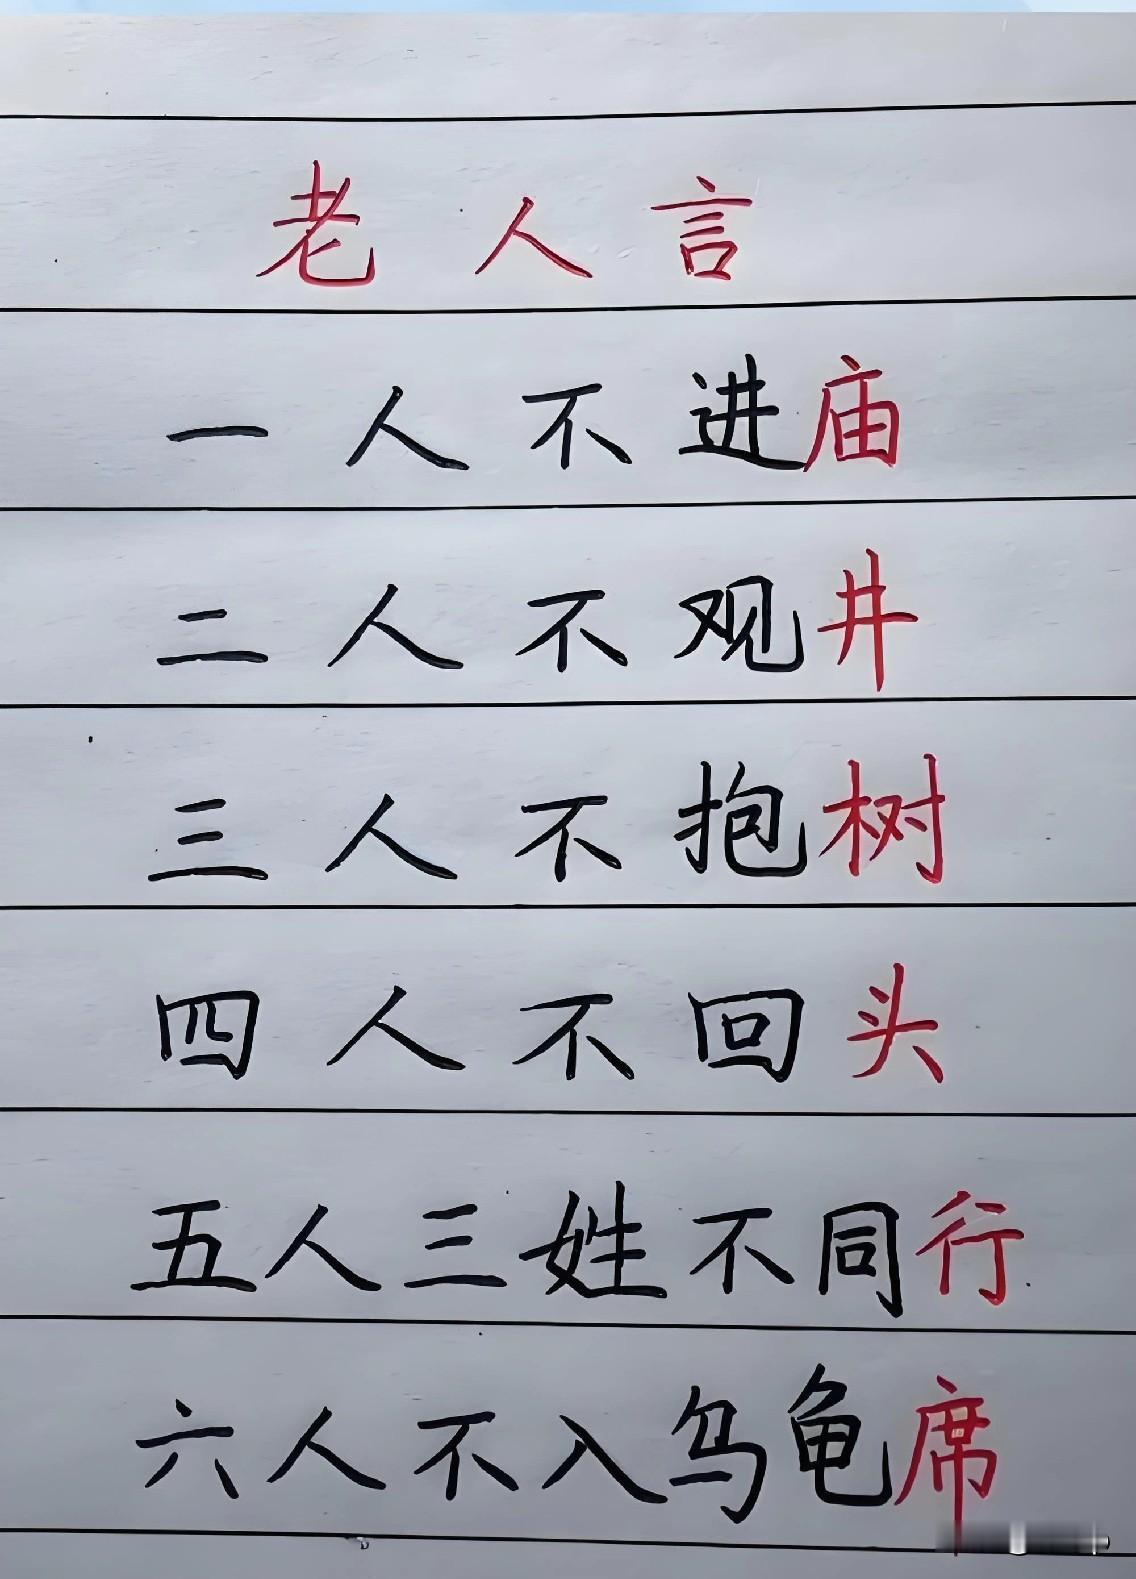 老人言
一人不进庙
二人不观井
三人不抱树
四人不回头
五人三姓不同行
六人不入乌龟席